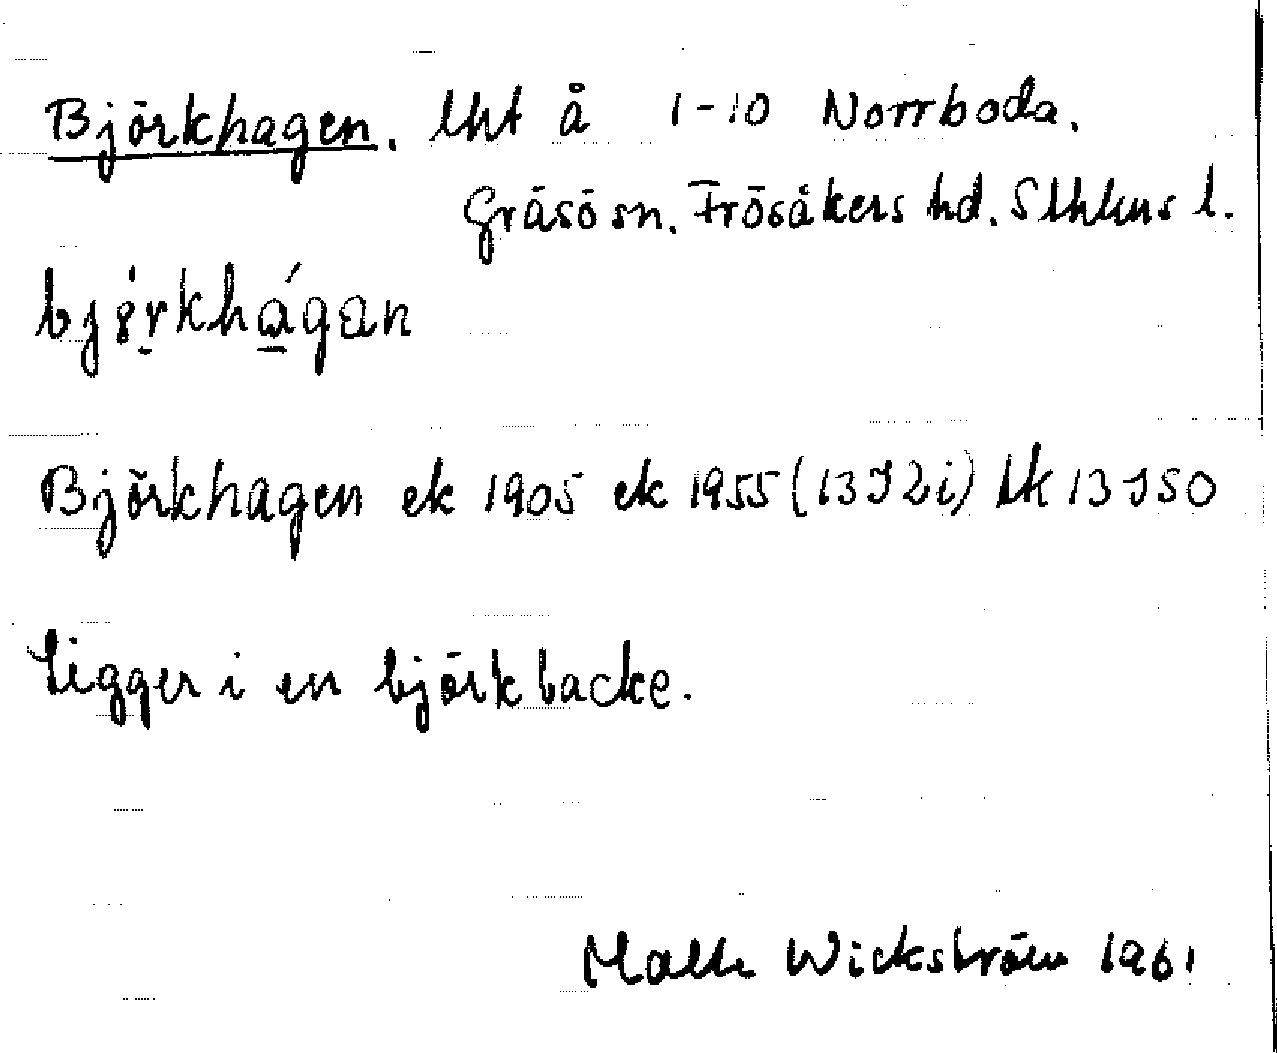 Björkhagen. lht å 1-10 Norrboda.
Gräsö sn. Frösåkers hd. Sthlms l.
Björkhagen ek 1905 ek 1955 (13I2i) lk 13 I SO
Ligger i en björkbacke.
Malte Wickström 1961